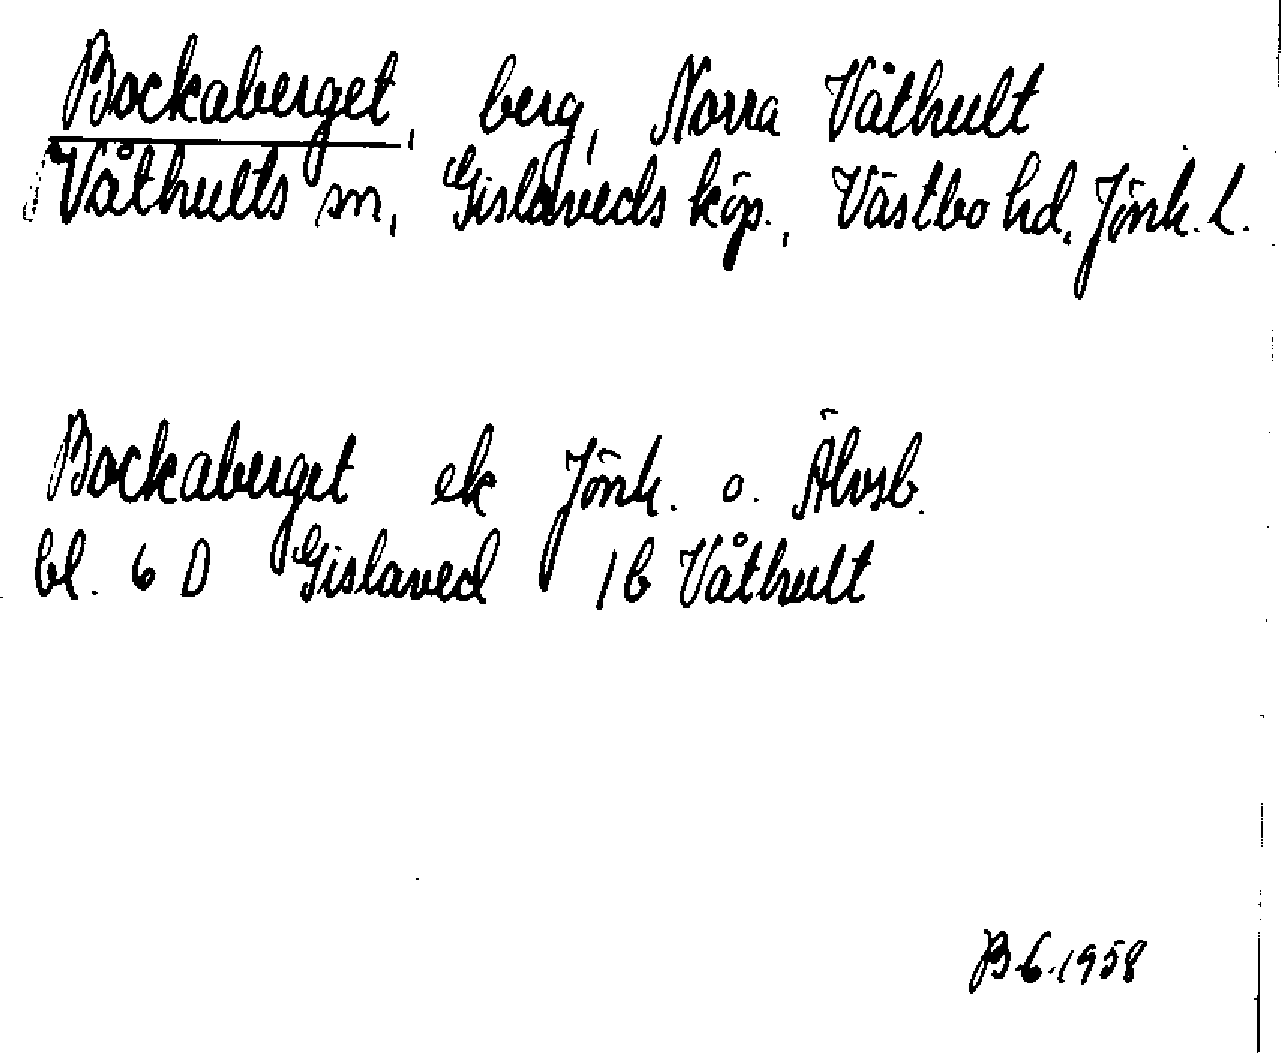 Bockaberget, berg, Norra Våthult
Våthults sn, Gislaveds köp., Västbo hd, Jönk. L.
Bockaberget ek Jönk. o. Älvsb.
bl. 6 D Gislaved 1b Våthult
B.G. 1958